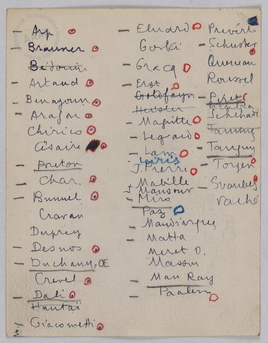 Arp
Brauner
Bédouin
Artaud
Benayoun
Aragon
Chirico
Césaire
Breton
Char
Bunuel
Cravan
Duprey
Desnos
Duchamp
Crevel
Dali
Hantaï
Giacometti
Eluard
Gorki
Gracq
Ernst
Heisler
Magritte
Legrand
Lam
J. Pierre
Mabille
Mansour
Miro
Paz
Mandiargues
Matta
Meret O.
Masson
Man Ray
Paalen
Prévert
Schuster
Queneau
Roussel
Péret
Schéhadé
Tanning
Tanguy
Toyen
Svanberg
Vaché